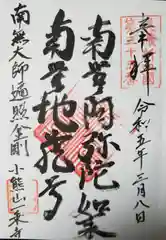 奉拝
令和五年三月八日
南無阿弥陀如来
南無地蔵尊
南無大師遍照金剛
小熊山一乗寺